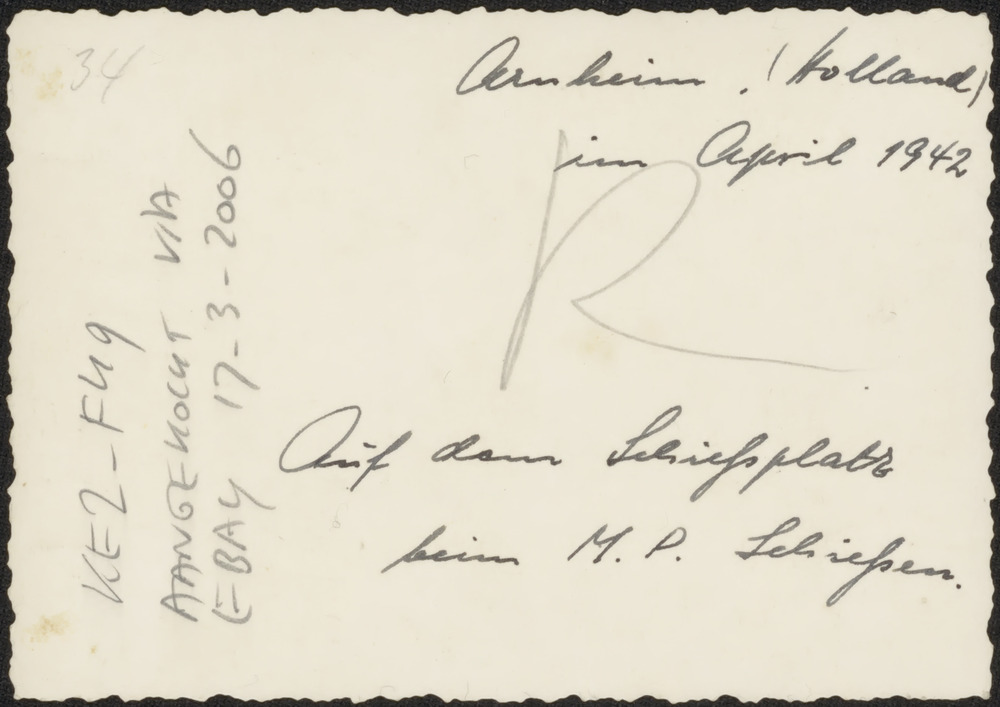 34
Arnheim, (Holland)
im April 1942
R
Auf dem Schießplatz
beim M. P. Schießen.
KE2-F49
AANGEKOCHT VIA
EBAY 17-3-2006